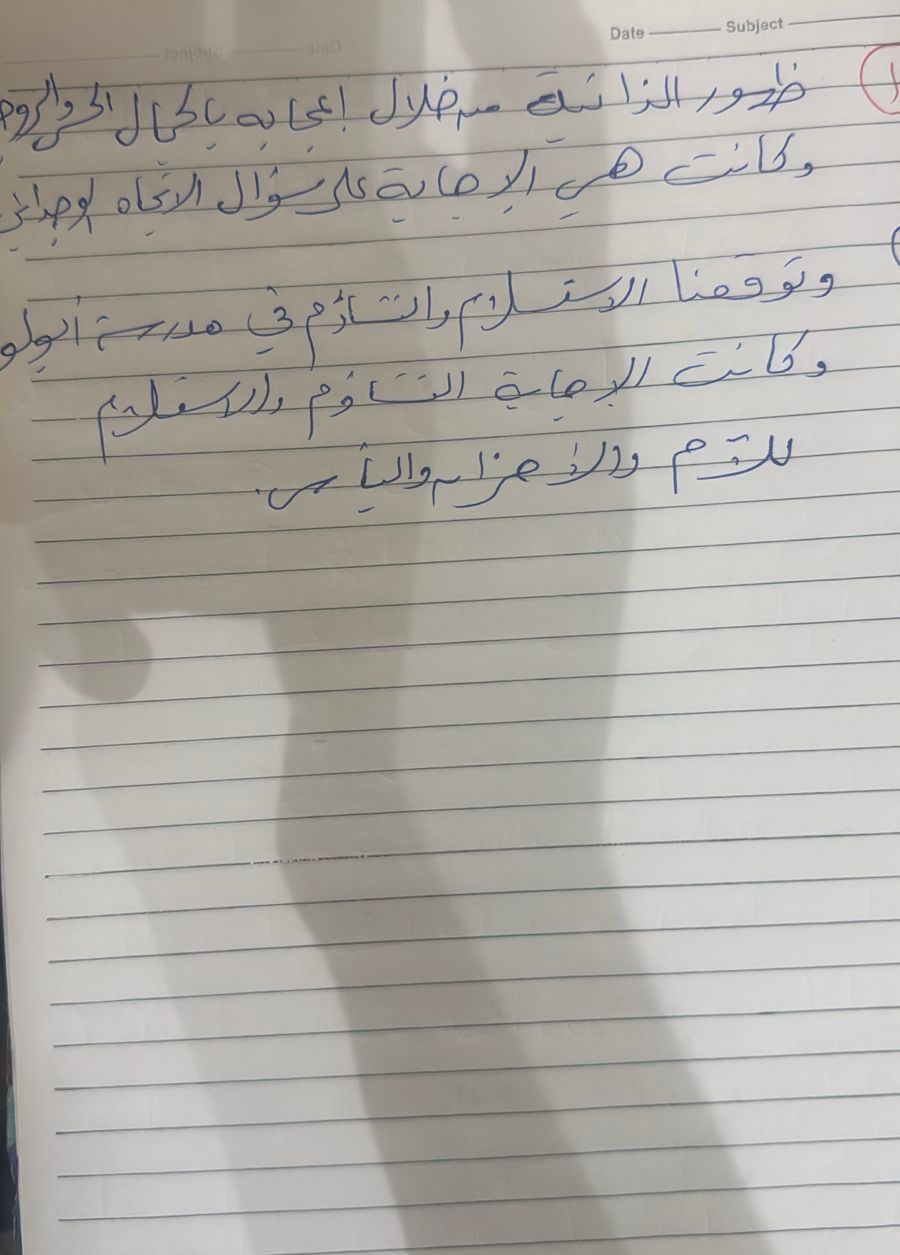 Date Subject
١ ظهور الذاتية من خلال إعجابه بالجمال الحسي والروح
وكانت هي الإجابة على سؤال الاتجاه الوجداني
وتوقعنا الاستسلام والتشاؤم في مدرسة أبولو
وكانت الإجابة التشاؤم والاستسلام
للألام والأحزان واليأس.